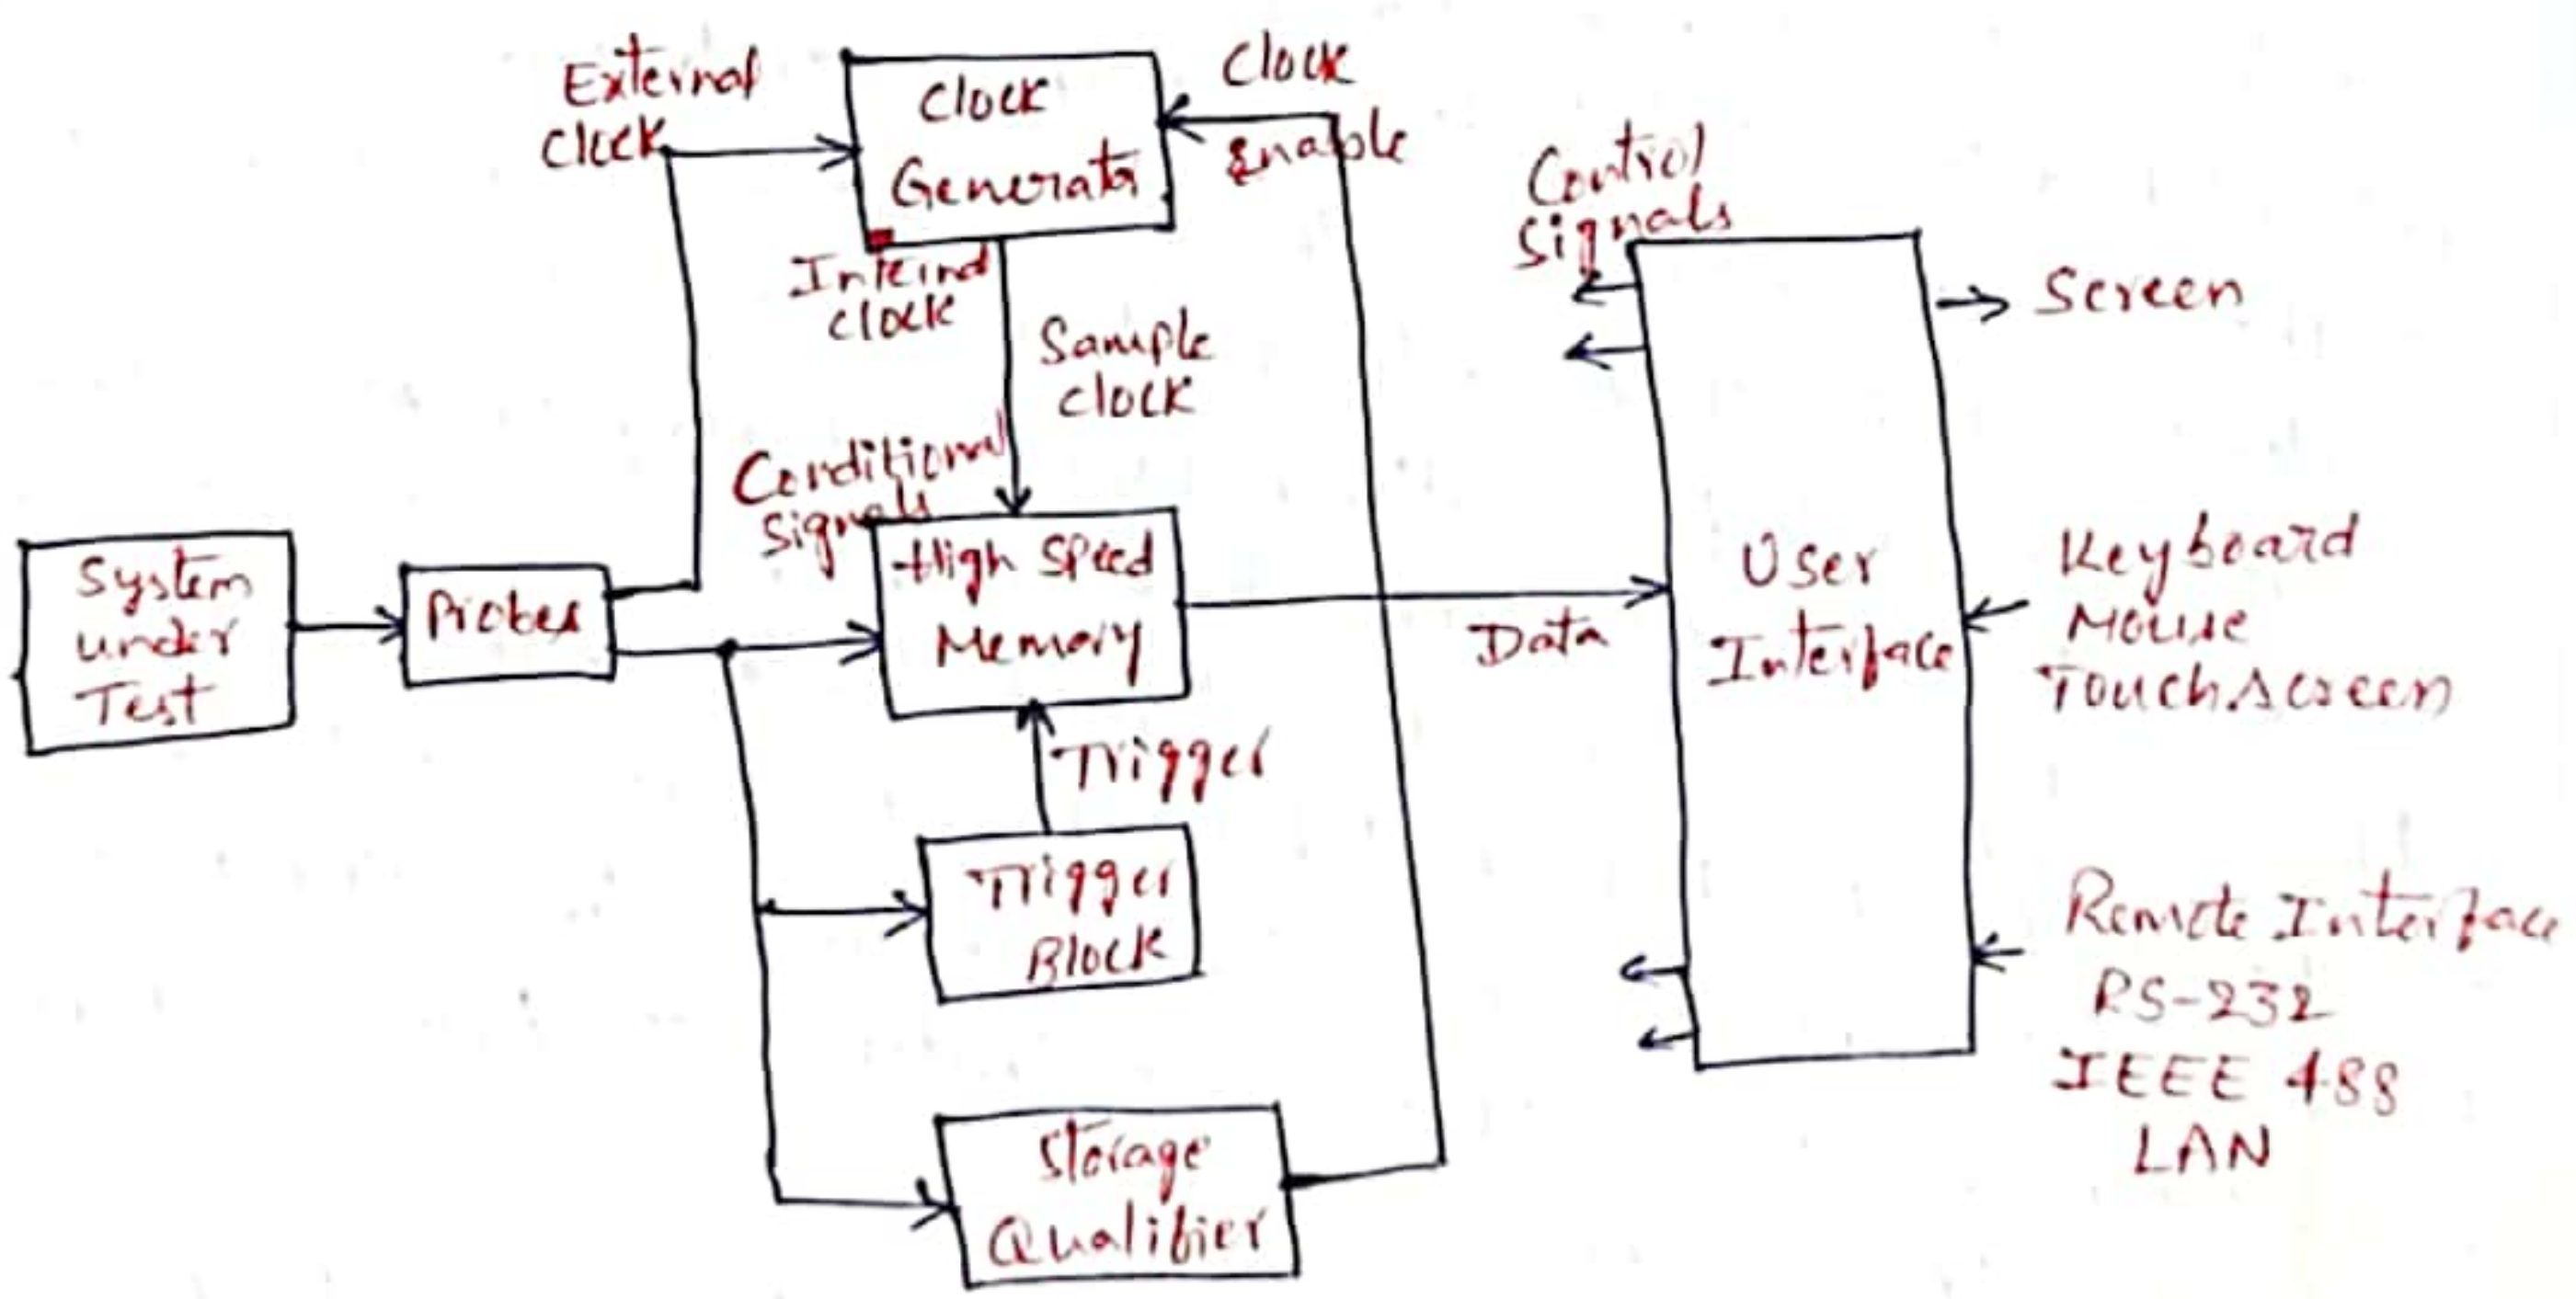 External
Clock
Clock
Generator
Clock
Enable
Internal
clock
Sample
clock
Control
Signals
Screen
Conditional
Signals
System
under
Test
Probes
High Speed
Memory
Data
User
Interface
Keyboard
Mouse
Touchscreen
Trigger
Trigger
Block
Remote Interface
RS-232
IEEE 488
LAN
Storage
Qualifier